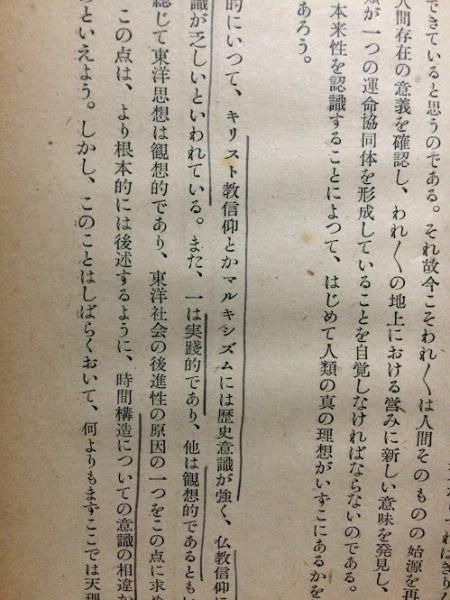 できていると思うのである。それ故今こそわれ〳〵は人間そのものの始源を再
人間存在の意義を確認し、われ〳〵の地上における営みに新しい意味を発見し、
類が一つの運命協同体を形成していることを自覚しなければならないのである。
本来性を認識することによつて、はじめて人類の真の理想がいすこにあるかを
あろう。
的にいつて、キリスト教信仰とかマルキシズムには歴史意識が強く、仏教信仰に
識が乏しいといわれている。また、一は実践的であり、他は観想的であるともい
総じて東洋思想は観想的であり、東洋社会の後進性の原因の一つをこの点に求め
この点は、より根本的には後述するように、時間構造についての意識の相違か
といえよう。しかし、このことはしばらくおいて、何よりもまずここでは天理